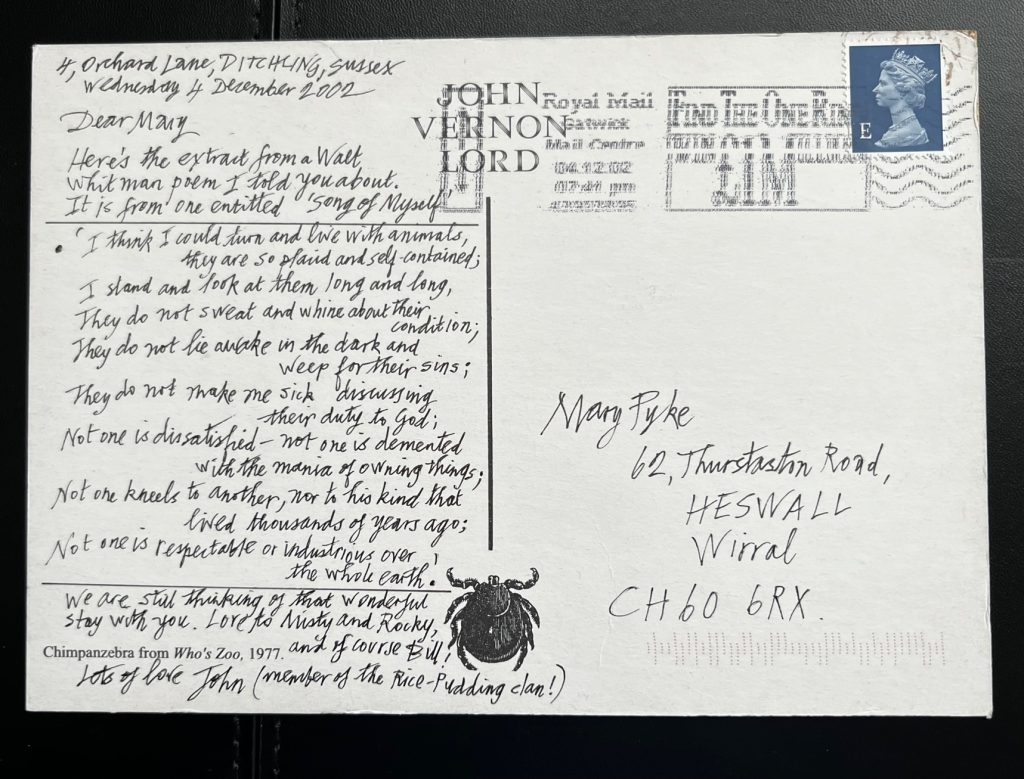 4, Orchard Lane, DITCHLING, Sussex
Wednesday 4 December 2002
Dear Mary
Here's the extract from a Walt
Whitman poem I told you about.
It is from one entitled 'Song of Myself'
'I think I could turn and live with animals,
they are so plaid and self-contained;
I stand and look at them long and long,
They do not sweat and whine about their
condition;
They do not lie awake in the dark and
weep for their sins;
They do not make me sick discussing
their duty to God;
Not one is dissatisfied – not one is demented
with the mania of owning things;
Not one kneels to another, nor to his kind that
lived thousands of years ago;
Not one is respectable or industrious over
the whole earth.'
We are still thinking of that wonderful
stay with you. Love to Misty and Rocky,
and of course Bill!
Chimpanzebra from Who's Zoo, 1977.
Lots of love John (member of the Rice-Pudding clan!)
JOHN
VERNON
LORD
Royal Mail
Gatwick
Mail Centre
04.12.02
07:41 pm
FIND THE ONE RING
E
Mary Pyke
62, Thurstaston Road,
HESWALL
Wirral
CH60 6RX.